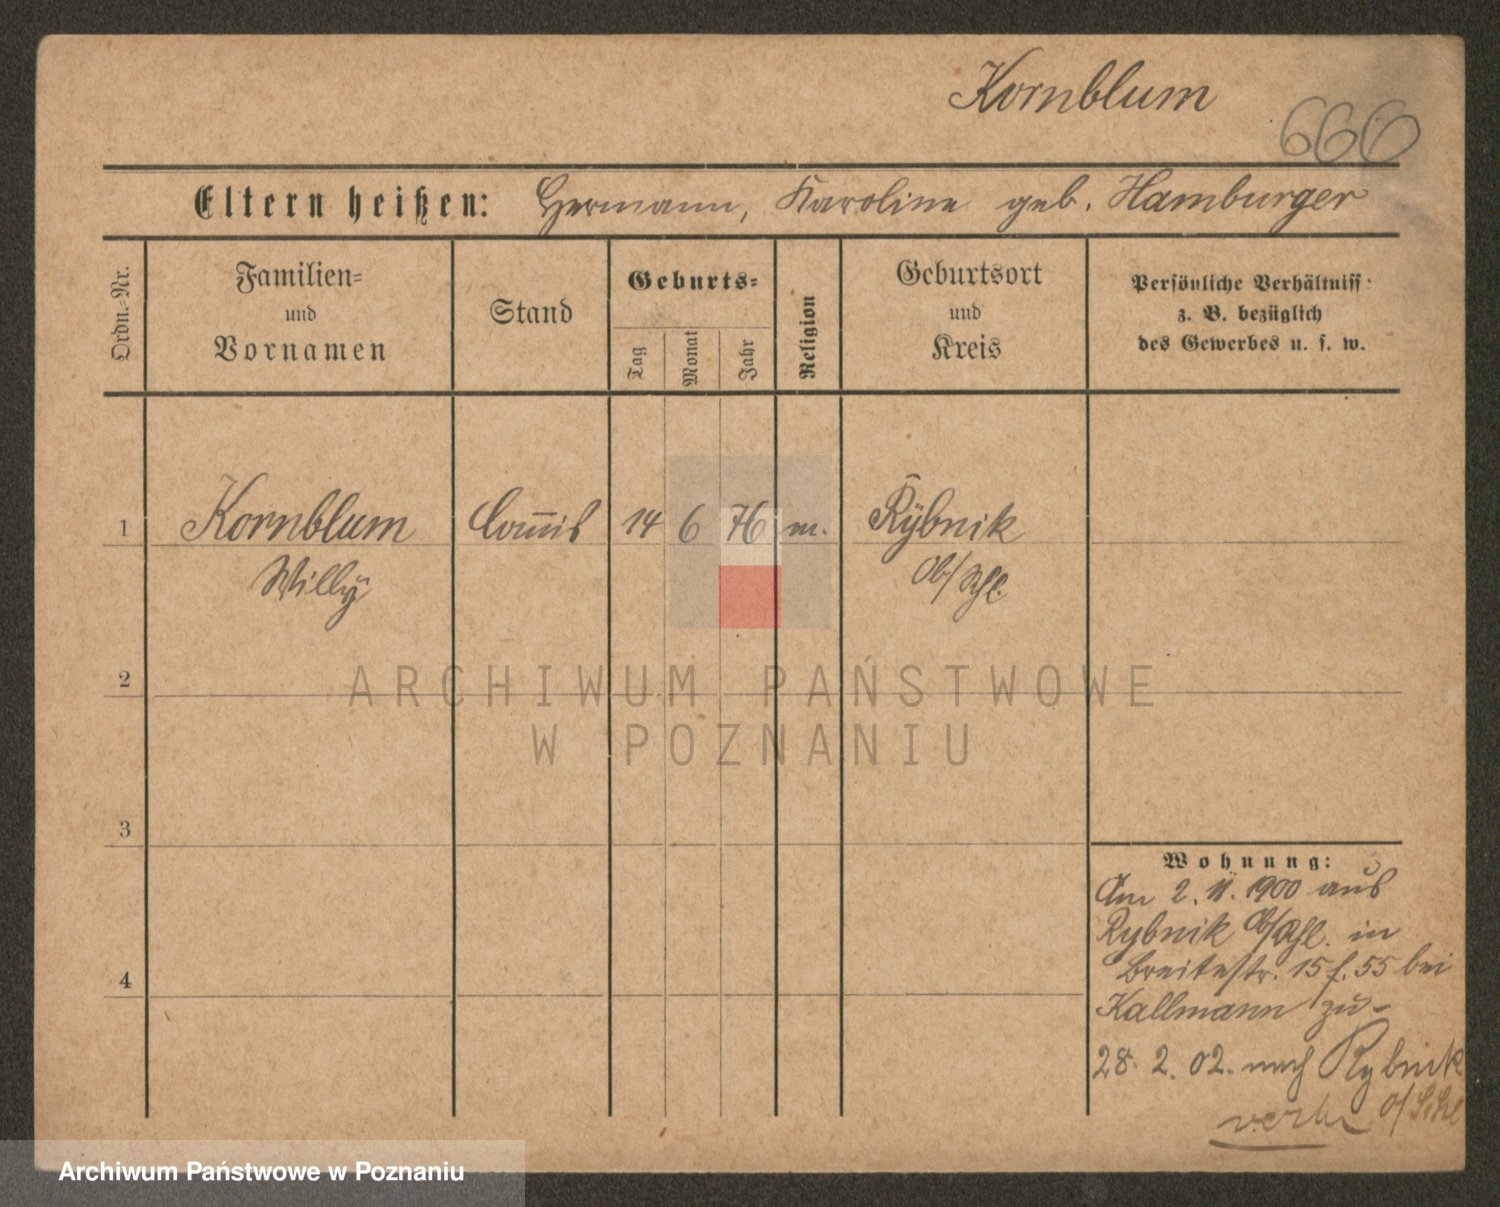 Kornblum
660
Eltern heißen: Hermann, Karoline geb. Hamburger
Ordn.-Nr.
Familien-
und
Vornamen
Stand
Geburts-
Tag
Monat
Jahr
Religion
Geburtsort
und
Kreis
Persönliche Verhältniss
z. B. bezüglich
des Gewerbes u. s. w.
1 Kornblum Commis 14 6 76 m. Rybnik
Willy Ob/Schl.
2
3
4
ARCHIWUM PAŃSTWOWE
W POZNANIU
Wohnung:
Am 2. 11. 1900 aus
Rybnik Ob/Schl. in
Breitestr. 15 f. 55 bei
Kallmann zu-
28. 2. 02. nach Rybnik
O/Schl
Archiwum Państwowe w Poznaniu